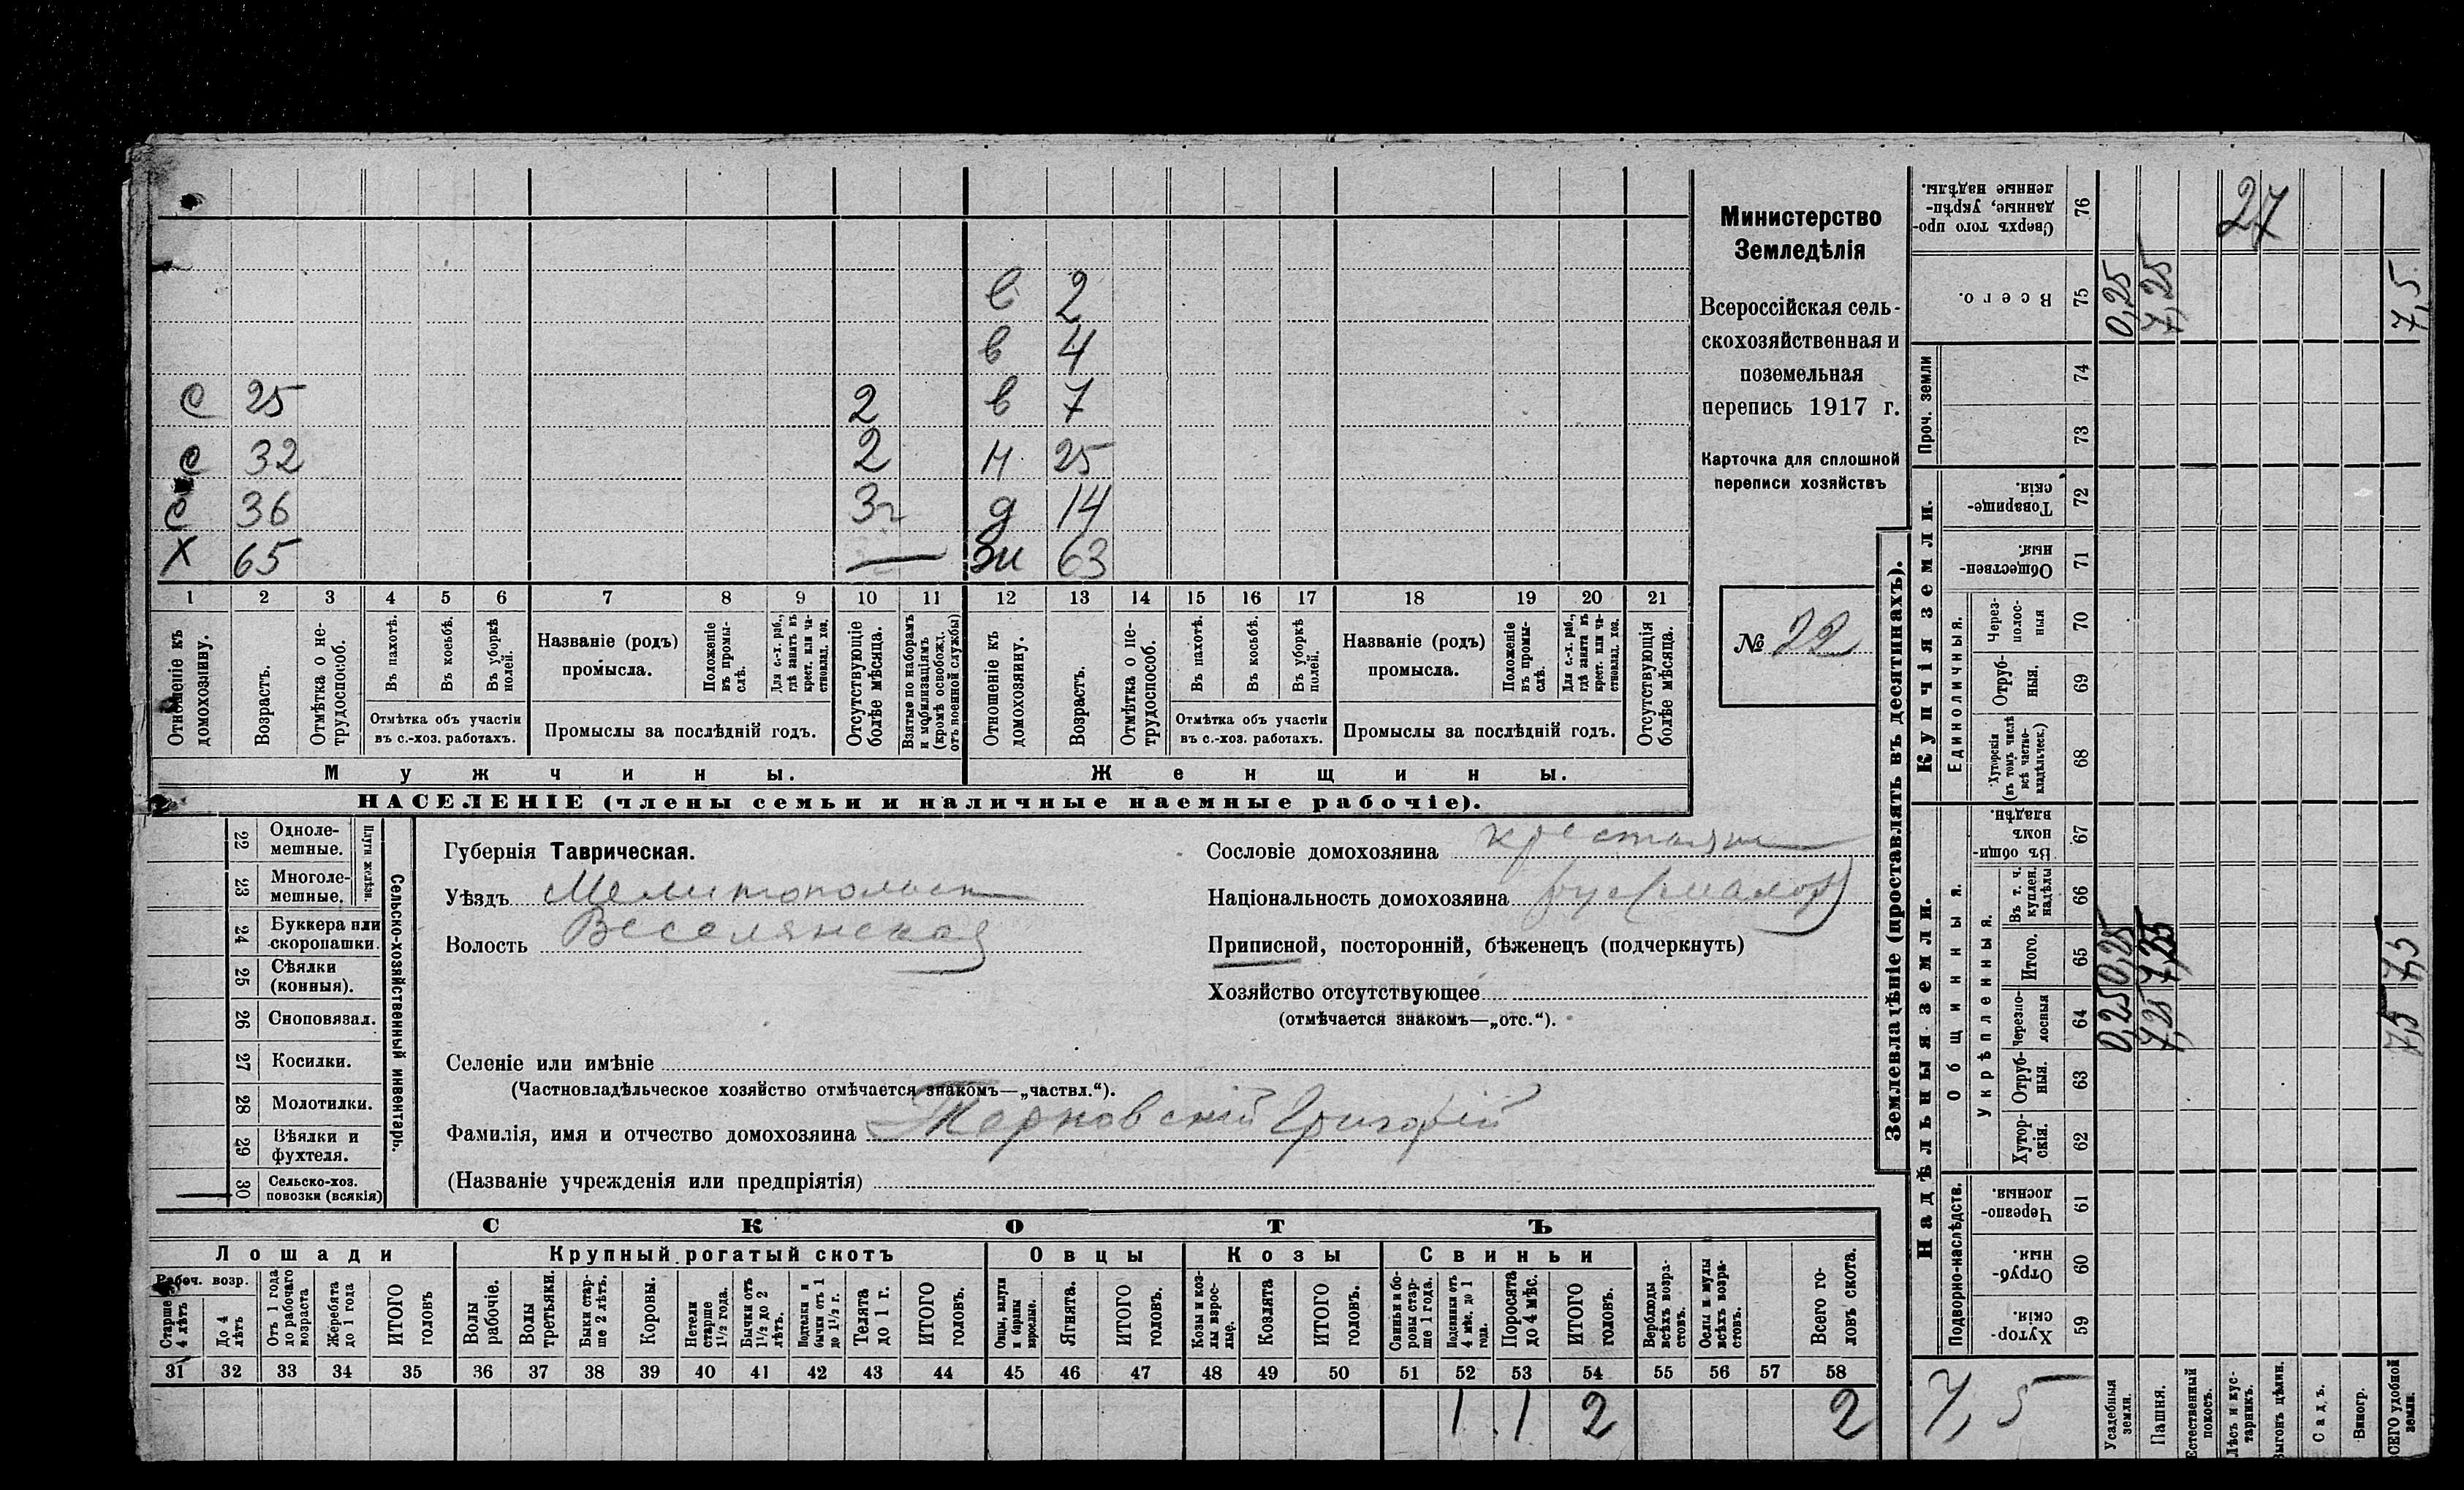 в 2
в 4
с 25 2 в 7
с 32 2 н 25
с 36 3г д 14
Х 65 — жн 63
1 2 3 4 5 6 7 8 9 10 11 12 13 14 15 16 17 18 19 20 21
Отношеніе къ домохозяину.
Возрастъ.
Отмѣтка о не-трудоспособ.
Въ пахотѣ.
Въ косьбѣ.
Въ уборкѣ полей.
Отмѣтка объ участіи
въ с.-хоз. работахъ.
Названіе (родъ)
промысла.
Положеніе въ промы-слѣ.
Для с.-х. раб., гдѣ занятъ въ крест. или ча-стновлад. хоз.
Промыслы за послѣдній годъ.
Отсутствующіе болѣе мѣсяца.
Взятые по наборамъ и мобилизаціямъ (кромѣ освобожд. отъ военной службы)
Отношеніе къ домохозяину.
Возрастъ.
Отмѣтка о не-трудоспособ.
Въ пахотѣ.
Въ косьбѣ.
Въ уборкѣ полей.
Отмѣтка объ участіи
въ с.-хоз. работахъ.
Названіе (родъ)
промысла.
Положеніе въ промы-слѣ.
Для с.-х. раб., гдѣ занята въ крест. или ча-стновлад. хоз.
Промыслы за послѣдній годъ.
Отсутствующія болѣе мѣсяца.
Мужчины. Женщины.
НАСЕЛЕНІЕ (члены семьи и наличные наемные рабочіе).
Министерство
Земледѣлія
Всероссійская сель-
скохозяйственная и
поземельная
перепись 1917 г.
Карточка для сплошной
переписи хозяйствъ
№ 22
22 Одноле-мешные.
23 Многоле-мешные.
Плуги желѣзн.
24 Буккера или скоропашки.
25 Сѣялки (конныя).
26 Сноповязал.
27 Косилки.
28 Молотилки.
29 Вѣялки и фухтеля.
30 Сельско-хоз. повозки (всякія)
Сельско-хозяйственный инвентарь.
Губернія Таврическая.
Уѣздъ Мелитопольск
Волость Веселянская
Сословіе домохозяина крестьянин
Національность домохозяина рус (малор)
Приписной, посторонній, бѣженецъ (подчеркнуть)
Хозяйство отсутствующее
(отмѣчается знакомъ—„отс.“).
Селеніе или имѣніе
(Частновладѣльческое хозяйство отмѣчается знакомъ—„частвл.“).
Фамилія, имя и отчество домохозяина Терновскій Григорій
(Названіе учрежденія или предпріятія)
СКОТЪ
Лошади Крупный рогатый скотъ Овцы Козы Свиньи
Рабоч. возр.
Старше 4 лѣтъ
До 4 лѣтъ
Отъ 1 года до рабочаго возраста
Жеребята до 1 года
ИТОГО головъ
Волы рабочіе.
Волы третьяки.
Быки стар-ше 2 лѣтъ.
Коровы.
Нетели старше 1½ года.
Бычки отъ 1½ до 2 лѣтъ.
Подтелки и бычки отъ 1 до 1½ г.
Телята до 1 г.
ИТОГО головъ.
Овцы, валухи и бараны взрослые.
Ягнята.
ИТОГО головъ.
Козы и коз-лы взрос-лые.
Козлята
ИТОГО головъ.
Свиньи и бо-ровы стар-ше 1 года.
Подсвинки отъ 4 мѣс. до 1 года.
Поросята до 4 мѣс.
ИТОГО головъ.
Верблюды всѣхъ возра-стовъ.
Ослы и мулы всѣхъ возра-стовъ.
Всего го-ловъ скота.
31 32 33 34 35 36 37 38 39 40 41 42 43 44 45 46 47 48 49 50 51 52 53 54 55 56 57 58
1 1 2 2
Землевладѣніе (проставлять въ десятинахъ).
Надѣльныя земли. Купчія земли. Проч. земли
Подворно-наслѣдств.
Общинныя.
Укрѣпленныя.
Единоличныя.
Хутор-скія. 59
Отруб-ныя. 60
Черезпо-лосныя. 61
Хутор-скія. 62
Отруб-ныя. 63
Черезпо-лосныя 64 0,25 7,25 7,5
Итого. 65 0,25 7,25 7,5
Въ т. ч. куплен. надѣлы 66
Въ общин-номъ владѣн. 67
Хуторскія (въ томъ числѣ всѣ частно-владѣльческ.) 68
Отруб-ныя. 69
Через-полос-ныя 70
Обществен-ныя. 71
Товарище-скія. 72
73
74
Всего. 75 0,25 7,25 7,5
Сверхъ того про-данные, укрѣп-ленные надѣлы. 76 27
7,5
Усадебныя земли.
Пашня.
Естественный покосъ.
Лѣсъ и кус-тарникъ.
Выгонъ цѣлин.
Садъ.
Виногр.
ВСЕГО удобной земли.